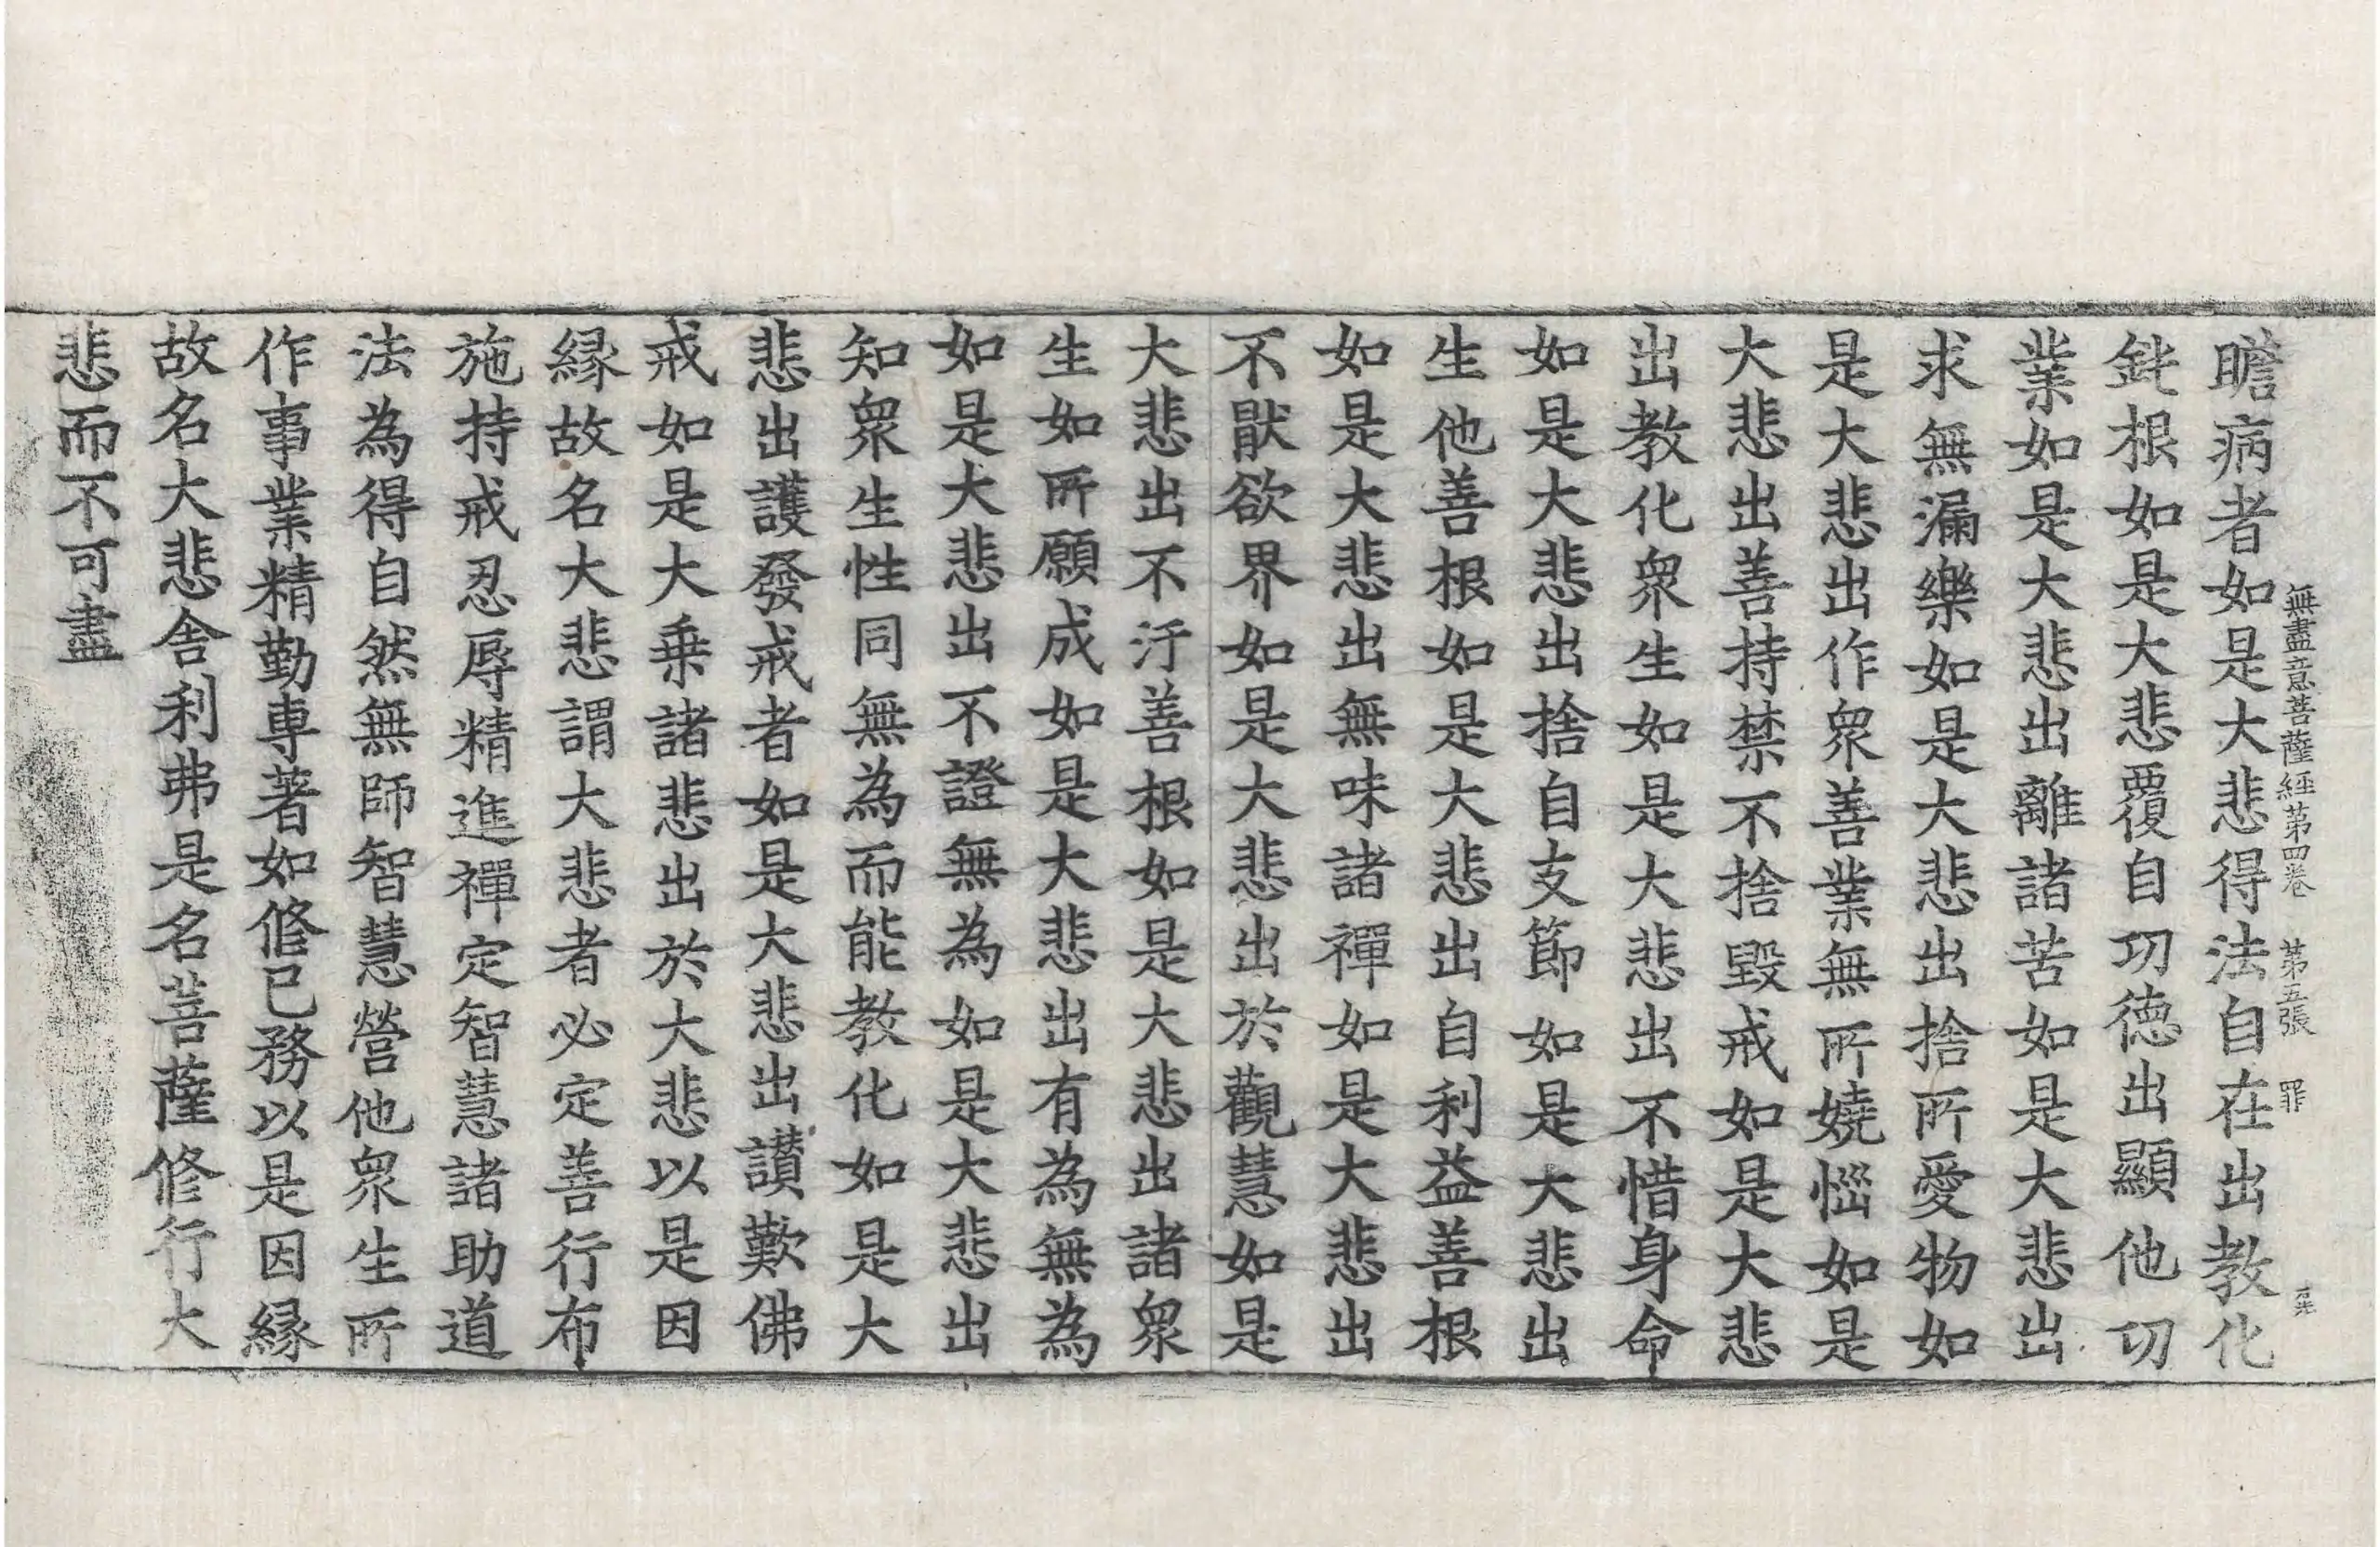 無盡意菩薩經第四卷　第五張　罪
瞻病者如是大悲得法自在出教化
鈍根如是大悲覆自功德出顯他功
業如是大悲出離諸苦如是大悲出
求無漏樂如是大悲出捨所愛物如
是大悲出作衆善業無所嬈惱如是
大悲出善持禁不捨毀戒如是大悲
出教化衆生如是大悲出不惜身命
如是大悲出捨自支節如是大悲出
生他善根如是大悲出自利益善根
如是大悲出無味諸禪如是大悲出
不猒欲界如是大悲出於觀慧如是
大悲出不汙善根如是大悲出諸衆
生如所願成如是大悲出有為無為
如是大悲出不證無為如是大悲出
知衆生性同無為而能教化如是大
悲出護發戒者如是大悲出讃歎佛
戒如是大乗諸悲出於大悲以是因
緣故名大悲謂大悲者必定善行布
施持戒忍辱精進禪定智慧諸助道
法為得自然無師智慧營他衆生所
作事業精勤專著如修已務以是因緣
故名大悲舎利弗是名菩薩修行大
悲而不可盡